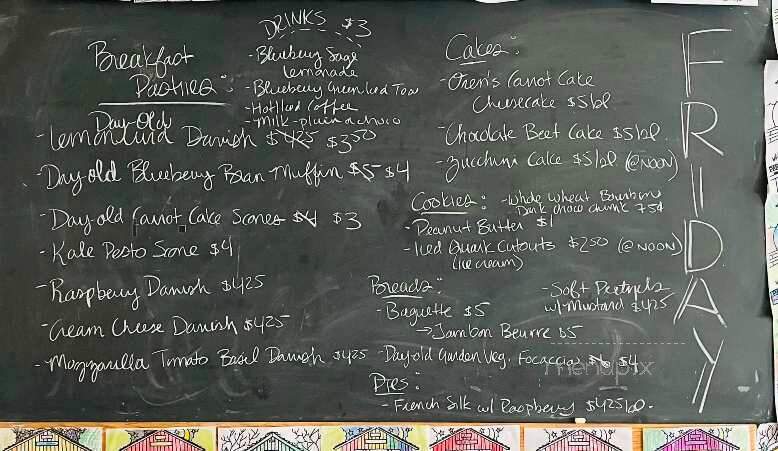 DRINKS $3
- Blueberry Sage
Lemonade
- Blueberry Green Iced Tea
- Hot/Iced Coffee
- Milk - plain or choco
Breakfast
Pastries:
Day-Old
- Lemon Curd Danish $4.25 $3.50
- Day-old Blueberry Bran Muffin $5 $4
- Day-old Carrot Cake Scones $4 $3
- Kale Pesto Scone $4
- Raspberry Danish $4.25
- Cream Cheese Danish $4.25
- Mozzarella Tomato Basil Danish $4.25
Cakes:
- Oren's Carrot Cake
Cheesecake $5/sl
- Chocolate Beet Cake $5/sl
- Zucchini Cake $5/sl (@NOON)
Cookies:
- Whole Wheat Bourbon
Dark choco chunk 75¢
- Peanut Butter $1
- Iced Quark Cutouts $2.50 (@NOON)
(ice cream)
Breads:
- Baguette $5
→ Jambon Beurre $5
- Soft Pretzels
w/ Mustard $4.25
- Day-old Garden Veg. Focaccias $6 $4
Pies:
- French Silk w/ Raspberry $4.25/sl.
FRIDAY
menupix